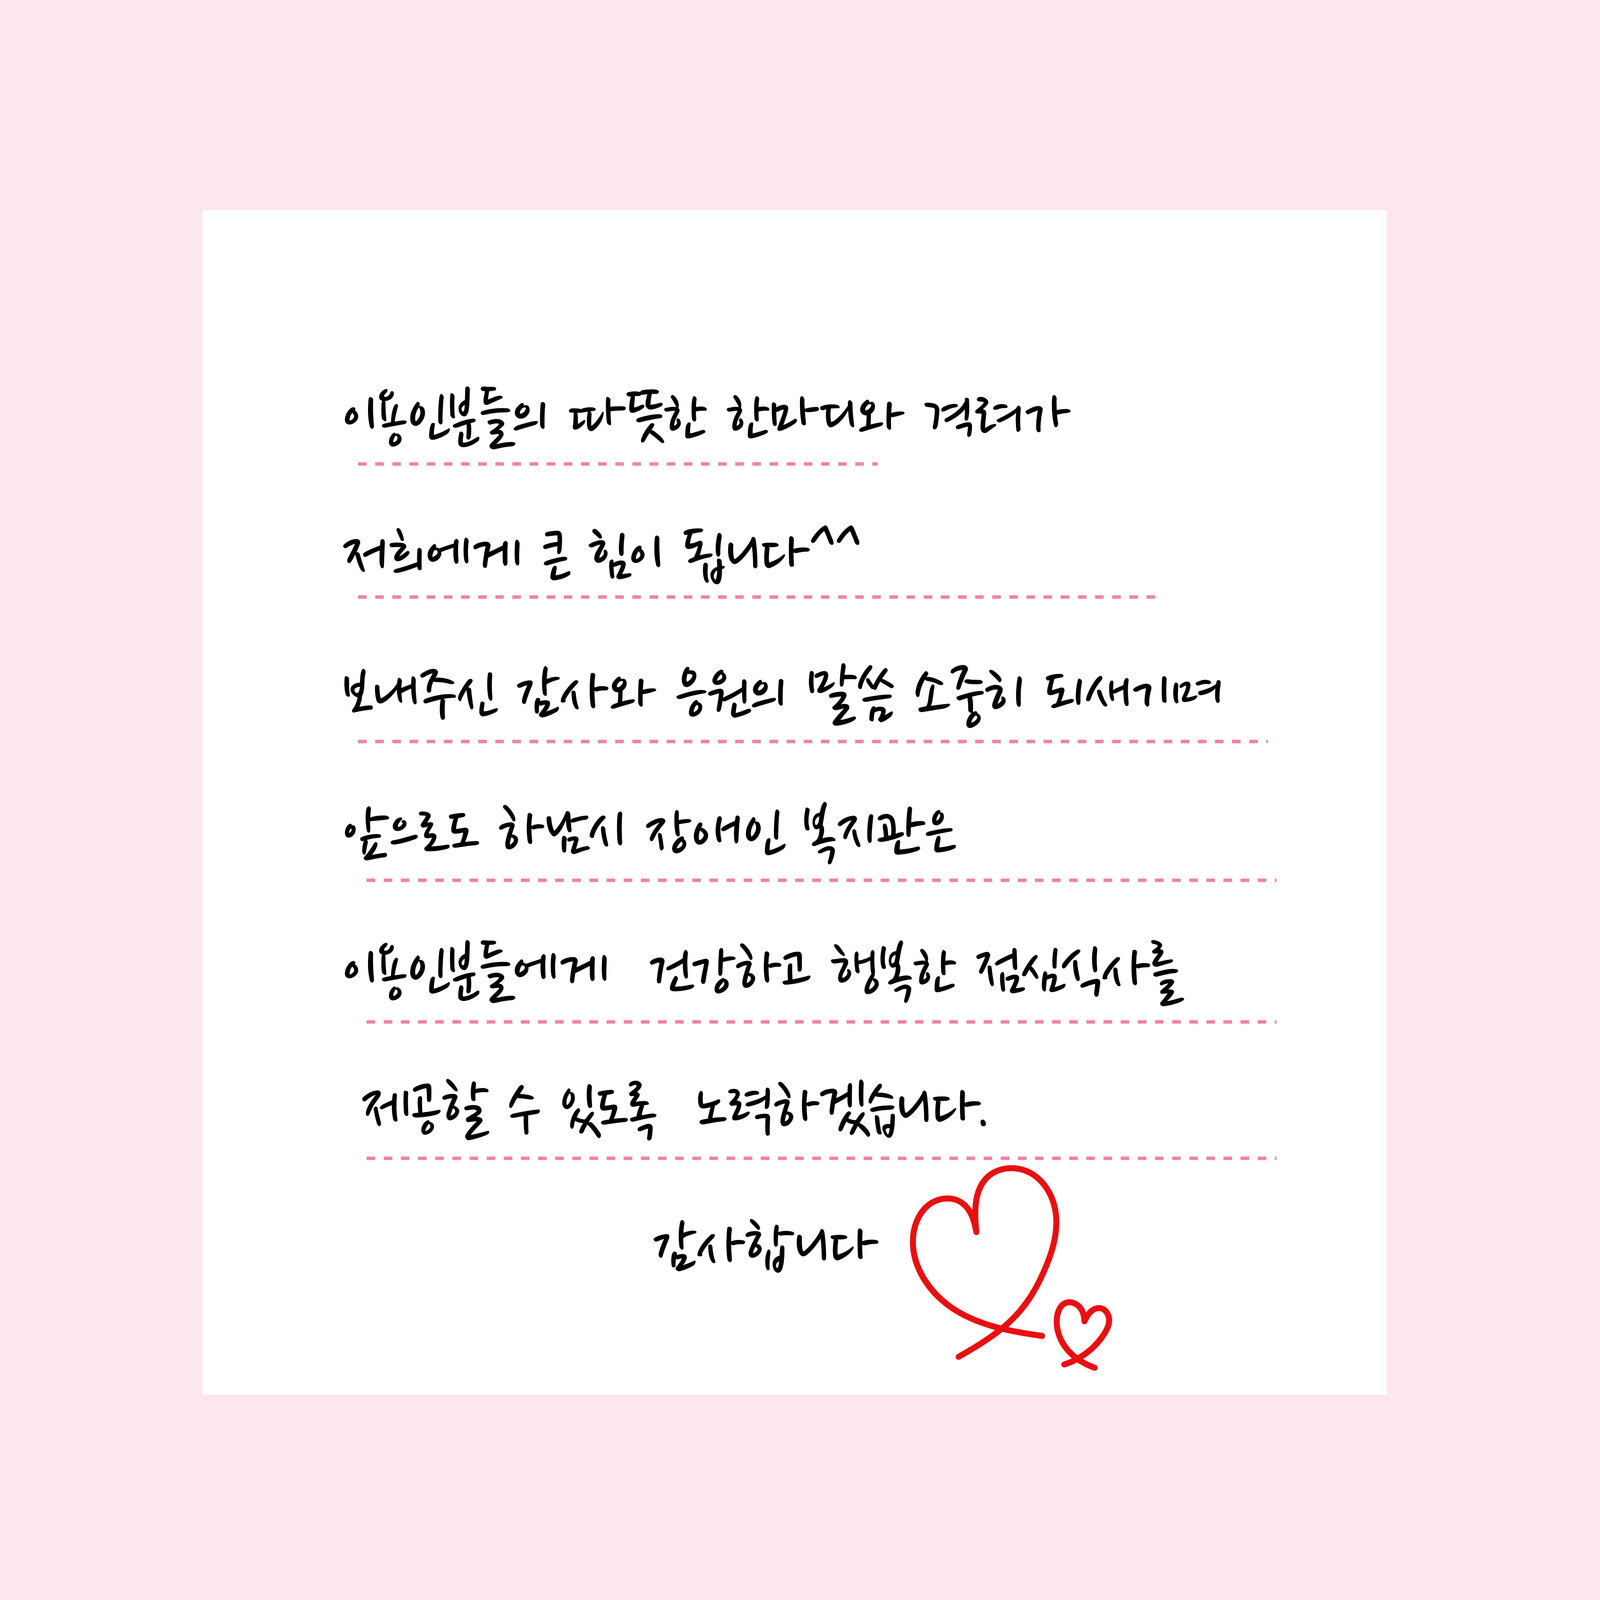 이용인분들의 따뜻한 한마디와 격려가
저희에게 큰 힘이 됩니다^^
보내주신 감사와 응원의 말씀 소중히 되새기며
앞으로도 하남시 장애인 복지관은
이용인분들에게 건강하고 행복한 점심식사를
제공할 수 있도록 노력하겠습니다.
감사합니다